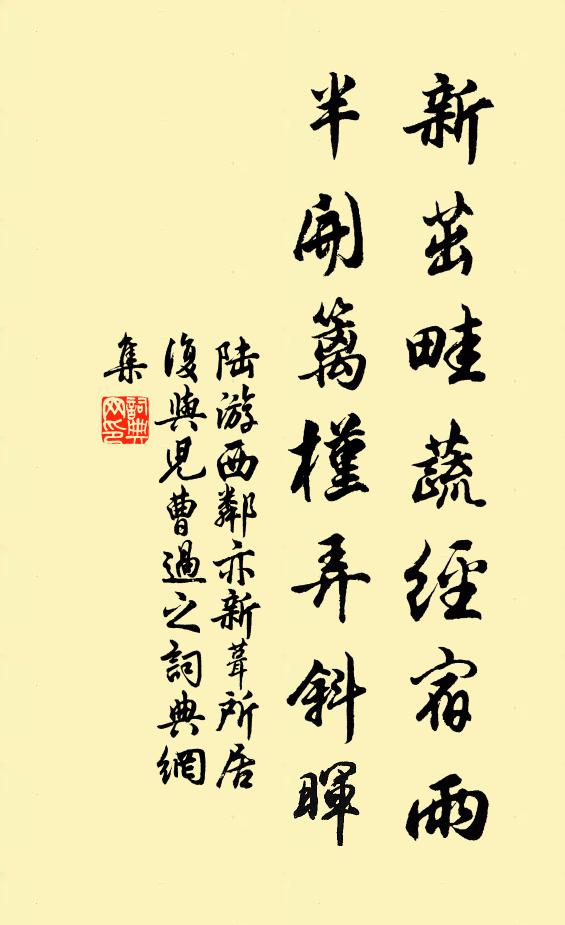 新茁畦蔬經宿雨
半開籬槿弄斜暉
陸游西鄰亦新葺所居
復與兒曹過之詞典網
集
詞典
网印